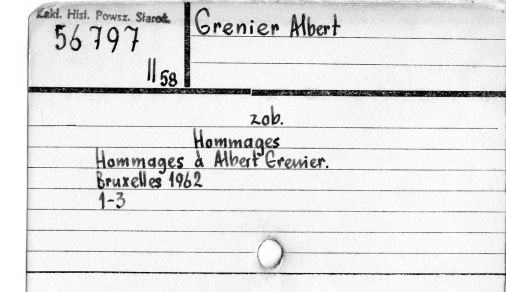 Zakł. Hist. Powsz. Staroż.
56797
II 58
Grenier Albert
zob.
Hommages
Hommages à Albert Grenier.
Bruxelles 1962
1-3